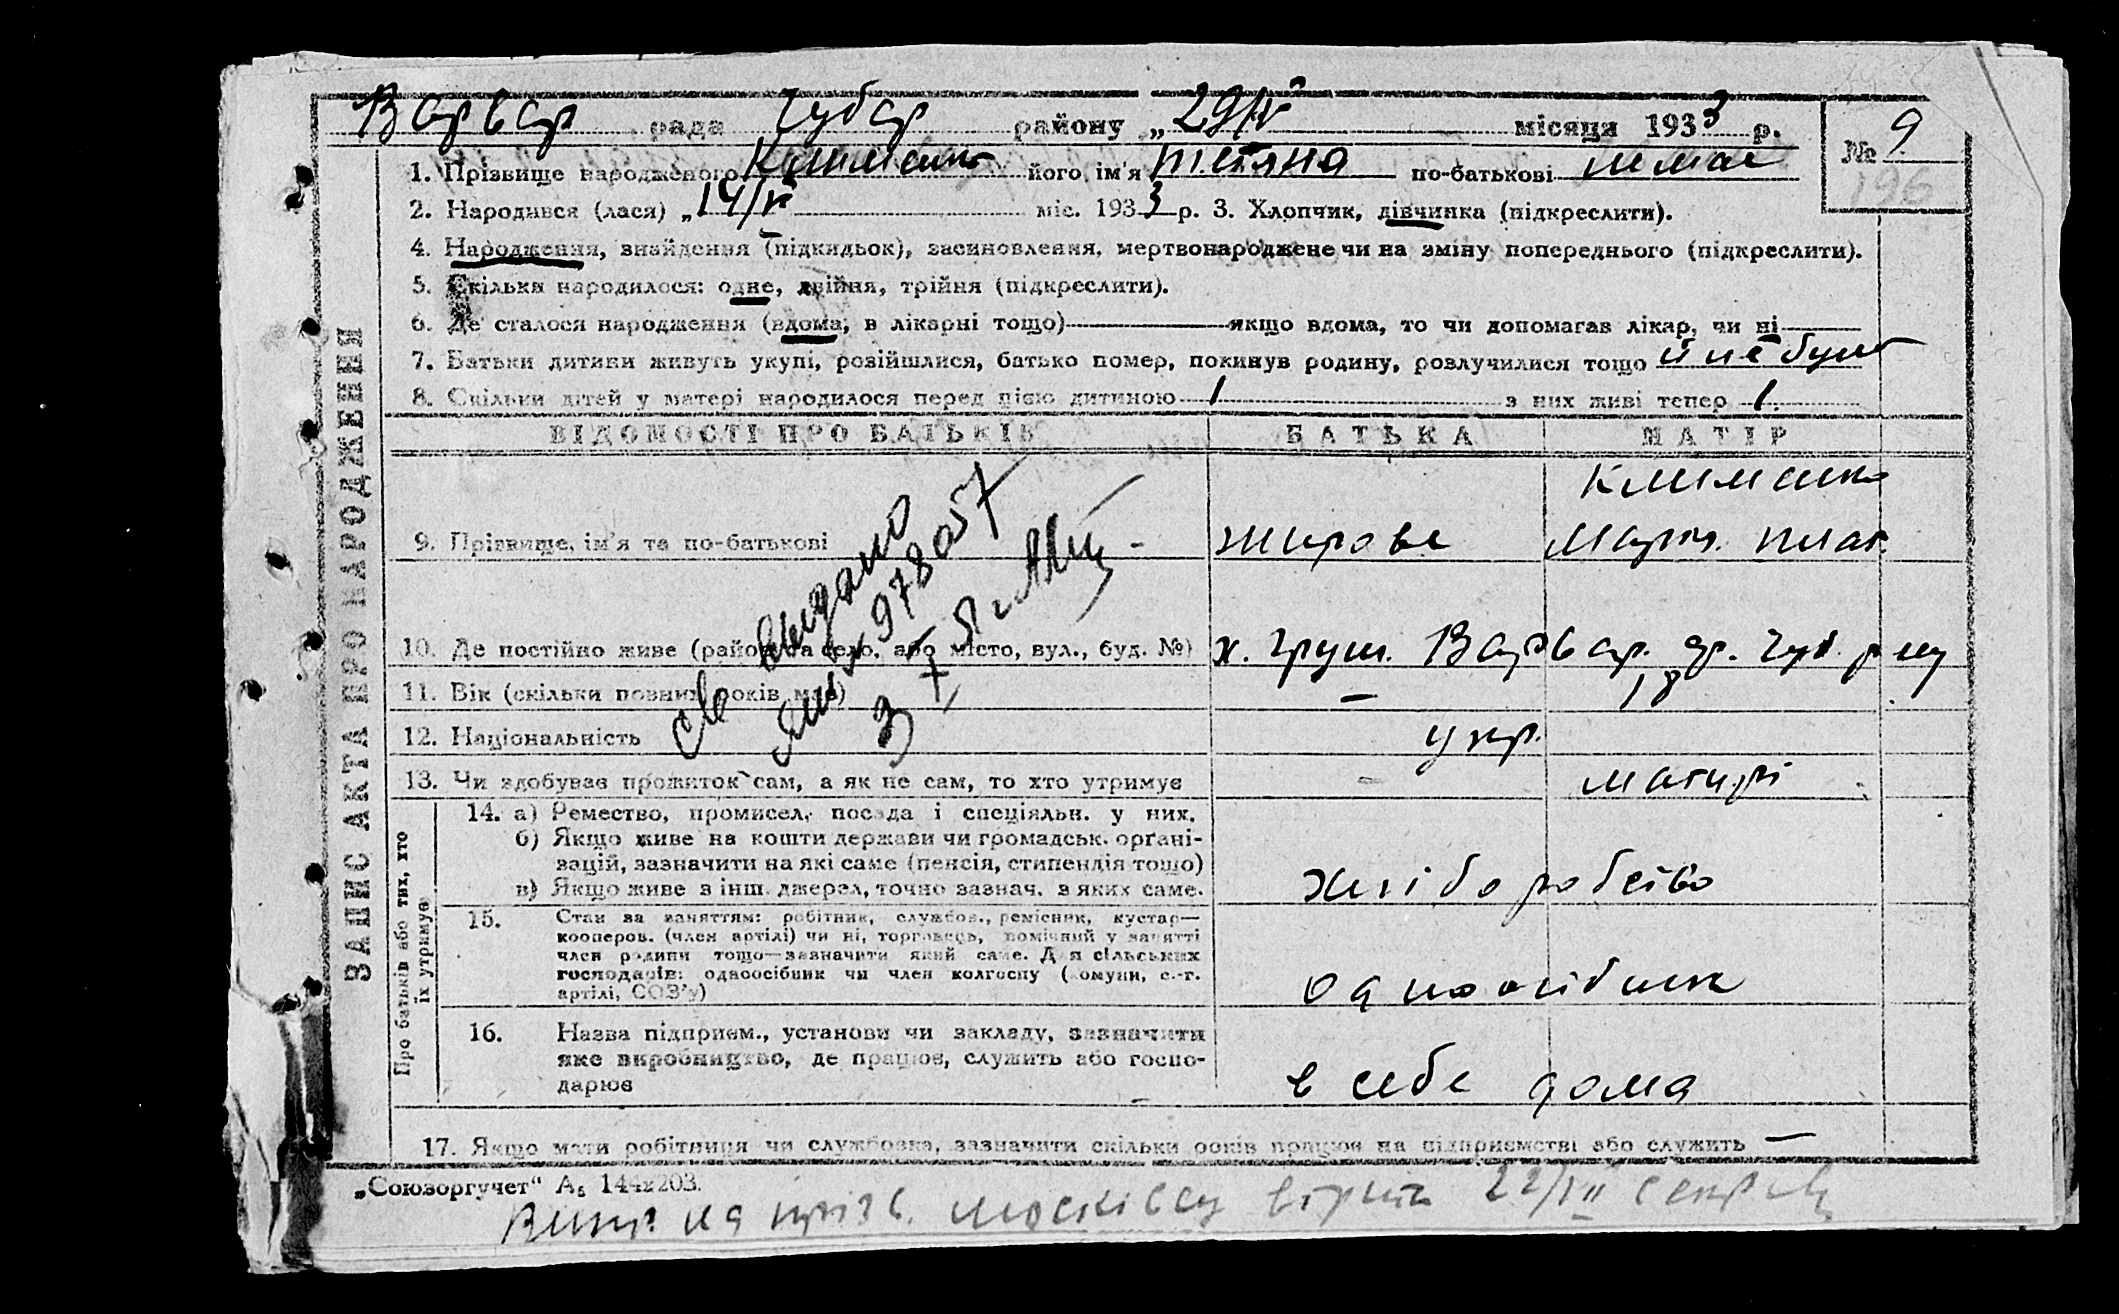 Варвар рада Чубар району „29/V 1933 р.
місяця
№ 9
196
1. Прізвище народженого Клименко його ім'я Тетяна по-батькові
2. Народився (лася) „14/V міс. 1933 р. 3. Хлопчик, дівчинка (підкреслити).
4. Народження, знайдення (підкидьок), засиновлення, мертвонароджене чи на зміну попереднього (підкреслити).
5. Скільки народилося: одне, двійня, трійня (підкреслити).
6. Де сталося народження (вдома, в лікарні тощо) якщо вдома, то чи допомагав лікар, чи ні
7. Батьки дитини живуть укупі, розійшлися, батько помер, покинув родину, розлучилися тощо й не було
8. Скільки дітей у матері народилося перед цією дитиною 1 з них живі тепер 1.
ЗАПИС АКТА ПРО НАРОДЖЕННЯ
ВІДОМОСТІ ПРО БАТЬКІВ БАТЬКА МАТІР
Клименко
9. Прізвище, ім'я та по-батькові
10. Де постійно живе (район та село, або місто, вул., буд. №) х. Груш. Варвар. Чуб. р-ну
11. Вік (скільки повних років має) – 18
12. Національність укр.
13. Чи здобував прожиток сам, а як не сам, то хто утримує –
Про батьків або тих, хто їх утримує
14. а) Ремество, промисел, посада і спеціяльн. у них.
б) Якщо живе на кошти держави чи громадськ. орґані-
зацій, зазначити на які саме (пенсія, стипендія тощо)
в) Якщо живе з інш. джерел, точно зазнач. з яких саме.
хліборобство
15. Стан за заняттям: робітник, службов., ремісник, кустар—
кооперов. (член артілі) чи ні, торговець, помічний у занятті
член родини тощо—зазначити який саме. Для сільських
господарів: одноосібник чи член колгоспу (комуни, с.-г.
артілі, СОЗ'у)
одноосібник
16. Назва підприєм., установи чи закладу, зазначити
яке виробництво, де працює, служить або госпо-
дарює
в себе дома
17. Якщо мати робітниця чи службовка, зазначити скільки років працює на підприємстві або служить —
св видано
978057
„Союзоргучет“ А₅ 144х203.
на прізв. 22/VII